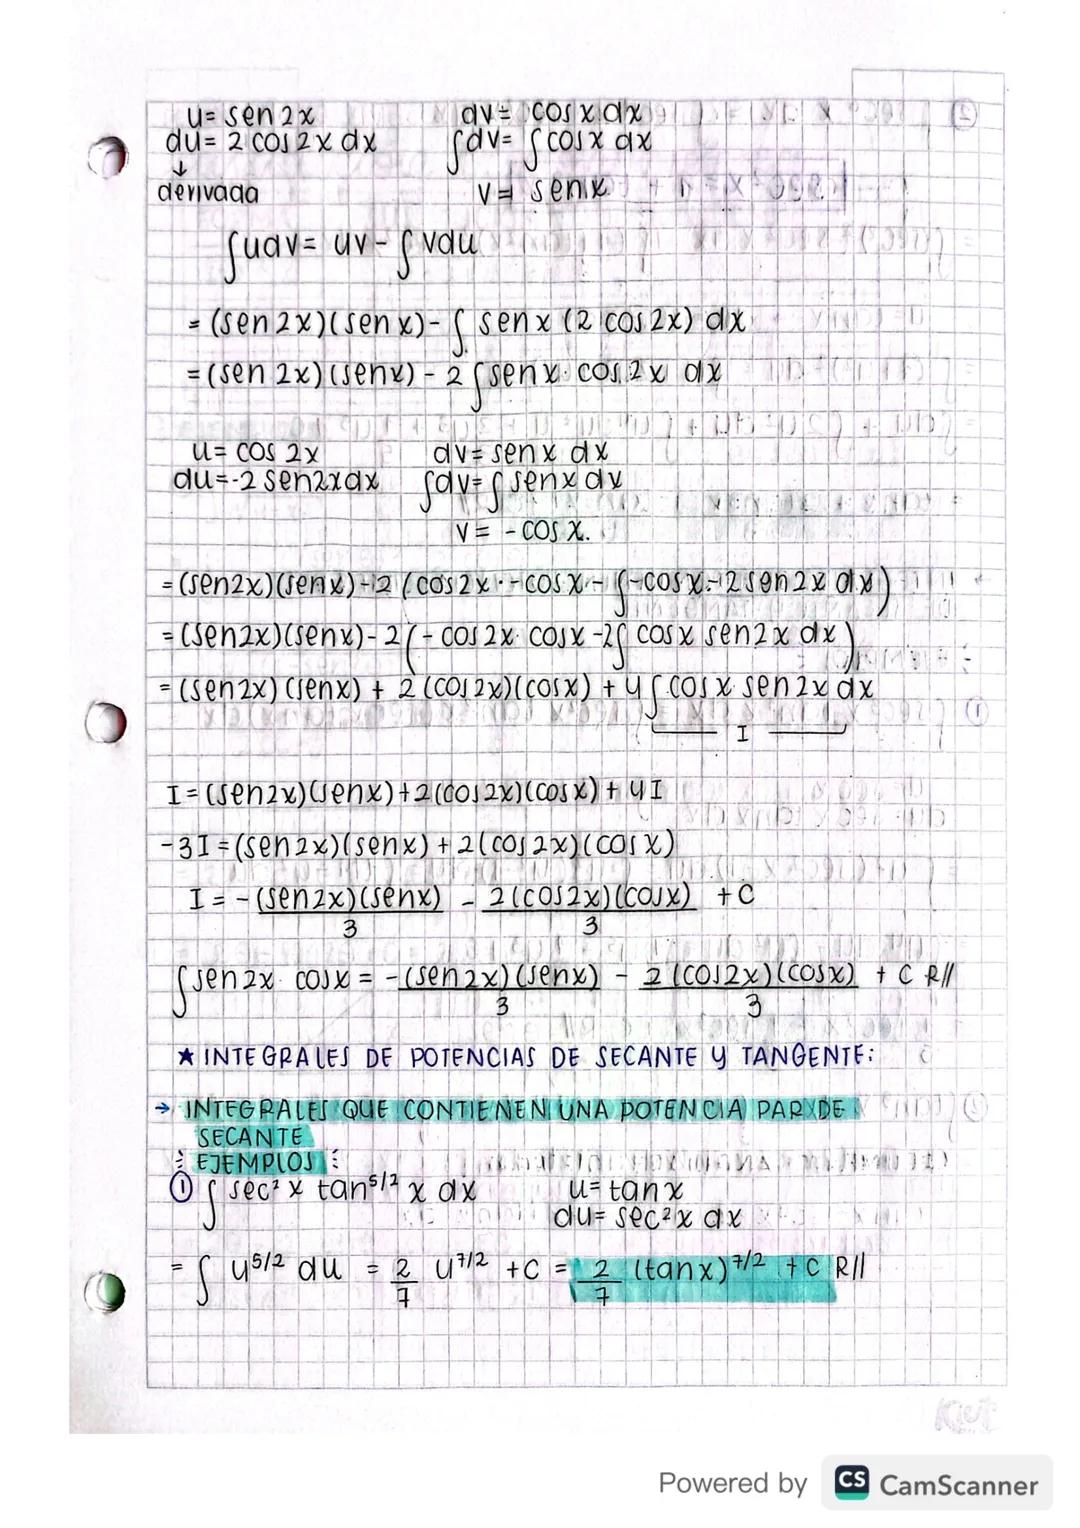 u= sen 2x    dv= cos x dx
du= 2 cos 2x dx    ∫dv= ∫cosx dx
↓
derivada    v= senx
∫udv= uv - ∫vdu
= (sen 2x)(sen x)- ∫ senx (2 cos 2x) dx
=(sen 2x)(senx) - 2 ∫senx · cos 2x dx
u= cos 2x    dv= senx dx
du=-2 sen2xdx    ∫dv=∫senx dv
v= - cos x.
=(sen2x)(senx)-2 (cos2x·-cosx-∫-cosx·-2sen2x dx)
=(sen2x)(senx)-2(-cos 2x·cosx -2∫ cosx sen2x dx)
= (sen2x)(senx) + 2(cos2x)(cosx) + 4∫cosx sen2x dx
I
I=(sen2x)(senx)+2(cos2x)(cosx)+4I
-3I=(sen2x)(senx)+2(cos2x)(cosx)
I = -(sen2x)(senx)/3 - 2(cos2x)(cosx)/3 +C
∫sen2x·cosx = -(sen2x)(senx)/3 - 2(cos2x)(cosx)/3 + C R//
★ INTEGRALES DE POTENCIAS DE SECANTE Y TANGENTE:
→ INTEGRALES QUE CONTIENEN UNA POTENCIA PAR DE
SECANTE
EJEMPLOS
① ∫ sec² x tan^5/2 x dx    u= tanx
du= sec²x dx
= ∫ u^5/2 du = 2/7 u^7/2 +C = 2/7 (tanx)^7/2 + C R//
Powered by CS CamScanner